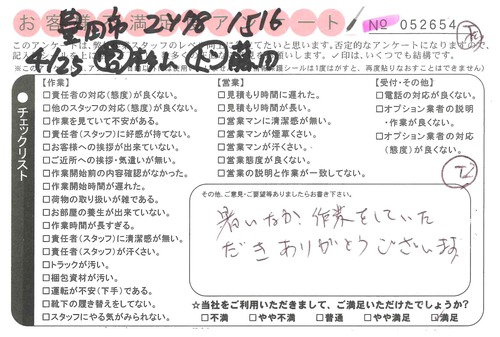 お客様満足アンケート
No 052654
豊田市 2478 1516
4/25
このアンケートは、
【作業】
□責任者の対応(態度)が良くない。
□他のスタッフの対応(態度)が良くない。
□作業を見ていて不安がある。
□責任者(スタッフ)に好感が持てない。
□お客様への挨拶が出来ていない。
□ご近所への挨拶・気遣いが無い。
□作業開始前の内容確認がなかった。
□作業開始時間が遅れた。
□荷物の取り扱いが雑である。
□お部屋の養生が出来ていない。
□作業時間が長すぎる。
□責任者(スタッフ)に清潔感が無い。
□責任者(スタッフ)が汗くさい。
□トラックが汚い。
□梱包資材が汚い。
□運転が不安(下手)である。
□靴下の履き替えをしてない。
□スタッフにやる気がみられない。
【営業】
□見積もり時間に遅れた。
□見積もり時間が長い。
□営業マンに清潔感が無い。
□営業マンが煙草くさい。
□営業マンが汗くさい。
□営業態度が良くない。
□営業の説明と作業が一致してない。
【受付・その他】
□電話の対応が良くない。
□オプション業者の説明
・作業が良くない。
□オプション業者の対応
(態度)が良くない。
チェックリスト
その他、ご意見・ご要望等ありましたらお書き下さい。
暑いなか、作業をしていた
だきありがとうございます
☆当社をご利用いただきまして、ご満足いただけたでしょうか?
□不満 □やや不満 □普通 □やや満足 ☑満足